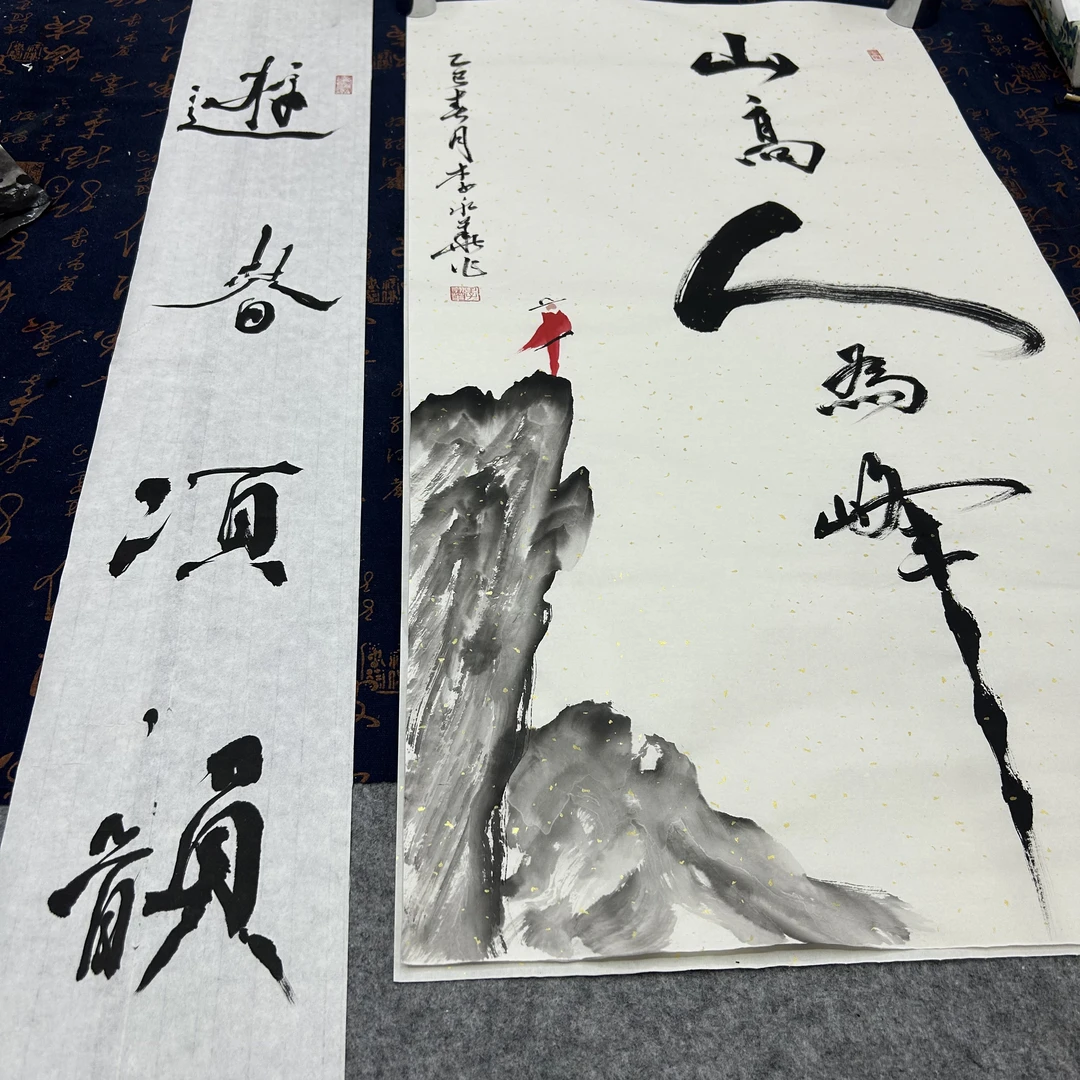 山高人為峰
乙巳春月李永華作
遊春須韻